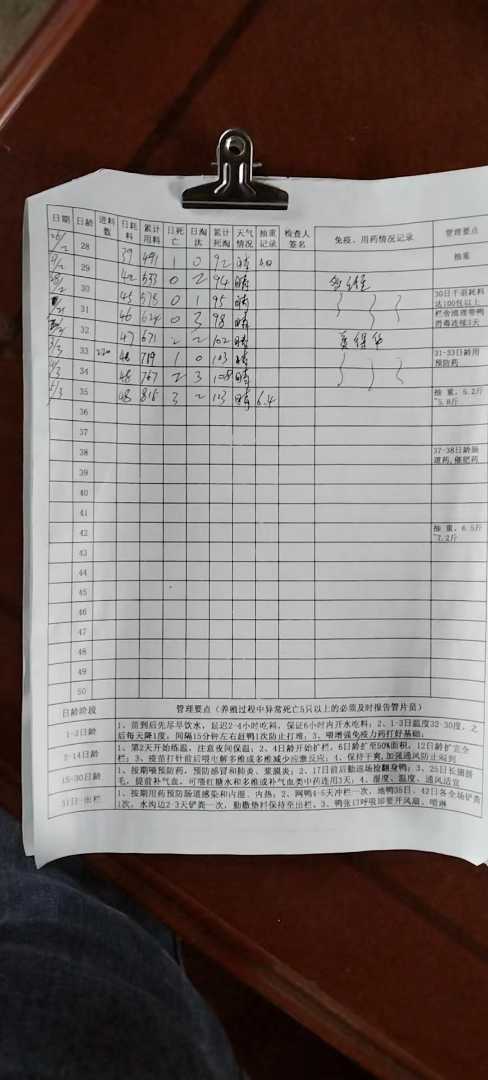 日期 日龄 进料数 日耗料 累计用料 日死亡 日淘汰 累计死淘 天气情况 抽重记录 检查人签名 免疫、用药情况记录 管理要点
28 39 491 1 0 92 晴 抽重
29 42 533 0 2 94 晴
30 45 575 0 1 95 晴 30日干混耗料达100包以上
31 46 624 0 3 98 晴 栏舍清理带鸭消毒连续3天
32 47 671 2 2 102 晴
1/3 33 220 48 719 1 0 103 晴 31-33日龄用预防药
34 48 767 2 3 108 晴
35 48 815 3 2 123 晴 6.4 抽重,5.2斤-5.8斤
36
37
38 37-38日龄肠道药,催肥药
39
40
41
42 抽重,6.5斤-7.2斤
43
44
45
46
47
48
49
50
日龄阶段 管理要点(养殖过程中异常死亡5只以上的必须及时报告管片员)
1-2日龄 1、苗到后先尽早饮水,延迟2-4小时吃料,保证6小时内开水吃料;2、1-3日温度32-30度,之
后每天降1度,间隔15分钟左右赶鸭1次防止打堆;3、喂增强免疫力药打好基础;
2-14日龄 1、第2天开始练温,注意夜间保温;2、4日龄开始扩栏,6日龄扩至50%面积,12日龄扩至全
栏;3、疫苗打针前后喂电解多维或多维减少应激反应;4、保持干爽,加强通风防止闷到
15-30日龄 1、按期喂预防药,预防感冒和肺炎、浆膜炎;2、17日前后勤巡场捡翻身鸭;3、25日长翅膀
毛,提前补气血,可喂红糖水和多维或补气血类中药连用3天;4、湿度、温度、通风适宜
31日-出栏 1、按期用药预防肠道感染和内湿、内热;2、网鸭4-5天冲栏一次,地鸭35日、42日各全场铲粪
1次,水沟边2-3天铲粪一次,勤撒垫料保持至出栏。3、鸭张口呼吸即要开风扇、喷淋